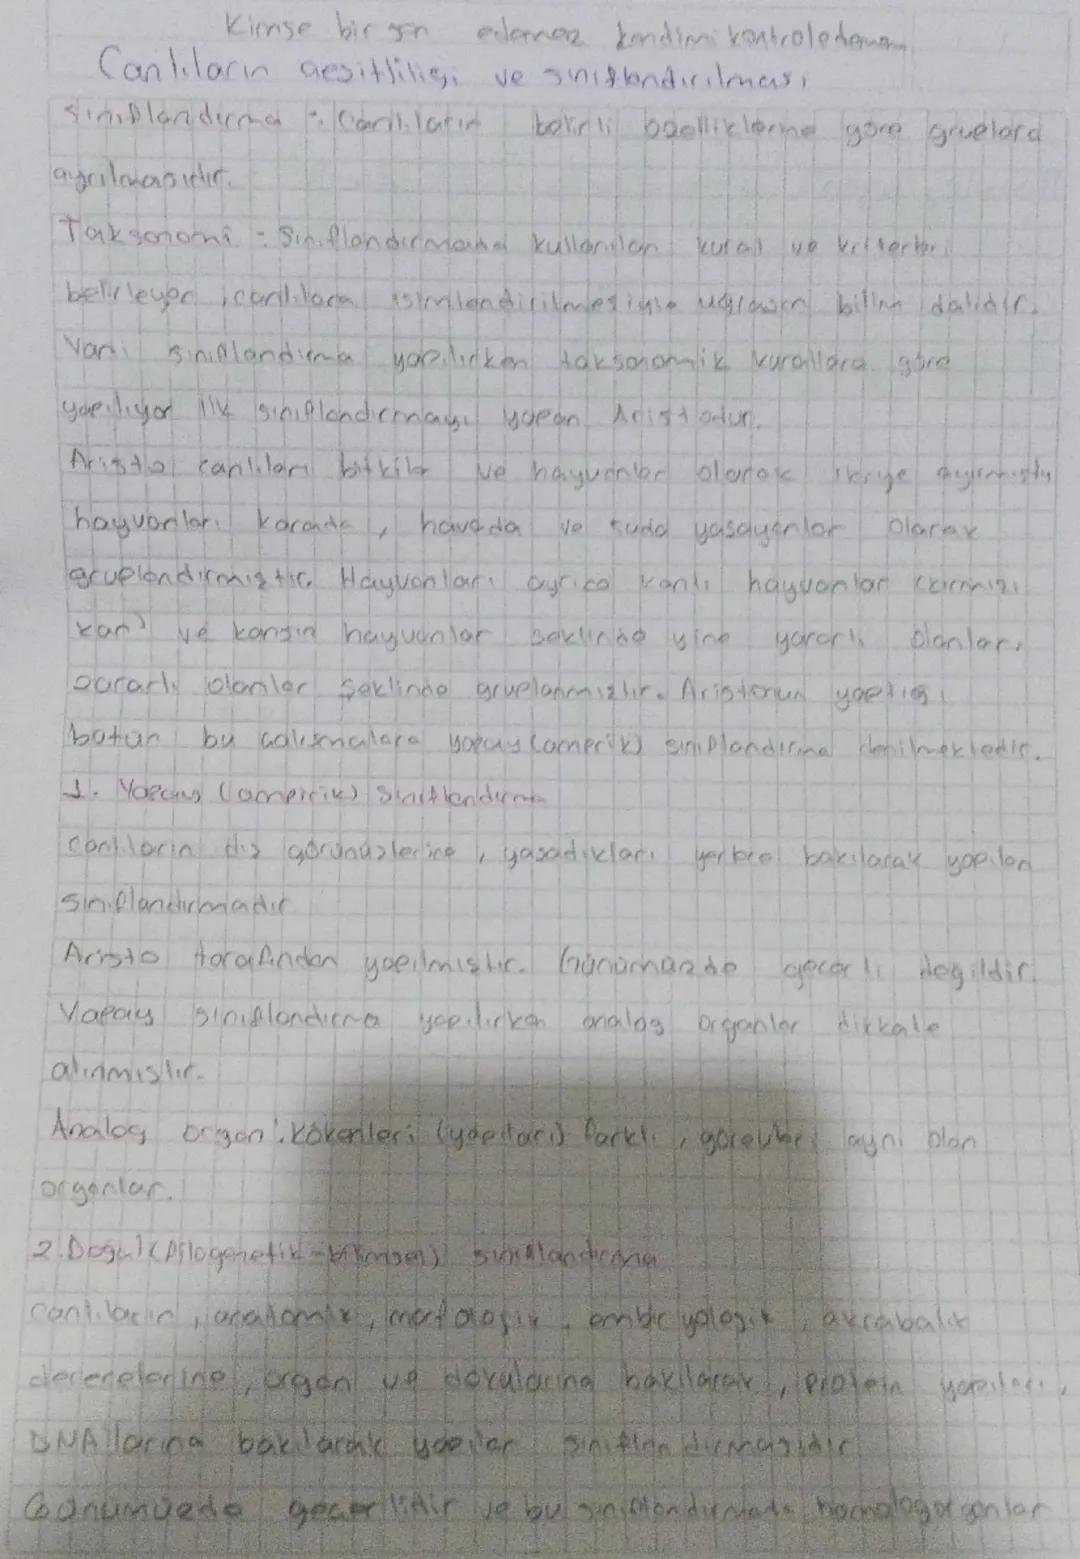 Kimse bir şen edemez kendimi kontrol edemem
Canlıların çeşitliliği ve sınıflandırılması
Sınıflandırma : Canlıların belirli özelliklerine göre gruplara
ayrılmasıdır.
Taksonomi : Sınıflandırmada kullanılan kural ve kriterleri
belirleyen, canlıların isimlendirilmesiyle uğraşan bilim dalıdır.
Yani sınıflandırma yapılırken taksonomik kurallara göre
yapılıyor ilk sınıflandırmayı yapan Aristodur.
Aristo canlıları bitkiler ve hayvanlar olarak ikiye ayırmıştır
hayvanları karada, havada ve suda yaşayanlar olarak
gruplandırmıştır. Hayvanları ayrıca kanlı hayvanlar (kırmızı
kan) ve kansız hayvanlar şeklinde yine yararlı olanlar,
zararlı olanlar şeklinde gruplanmıştır. Aristonun yaptığı
bütün bu çalışmalara yapay (amprik) sınıflandırma denilmektedir.
1. Yapay (ampirik) Sınıflandırma
Canlıların dış görünüşlerine, yaşadıkları yerlere bakılarak yapılan
sınıflandırmadır
Aristo tarafından yapılmıştır. Günümüzde geçerli değildir.
Yapay sınıflandırma yapılırken analog organlar dikkate
alınmıştır.
Analog organ : kökenleri (yapıları) farklı, görevleri aynı olan
organlar.
2. Doğal (Filogenetik-bilimsel) sınıflandırma
Canlıların, anatomik, morfolojik, embriyolojik, akrabalık
derecelerine, organ ve dokularına bakılarak, protein yapıları,
DNA'larına bakılarak yapılan sınıflandırmasıdır
Günümüzde geçerlidir ve bu sınıflandırmada homolog organlar